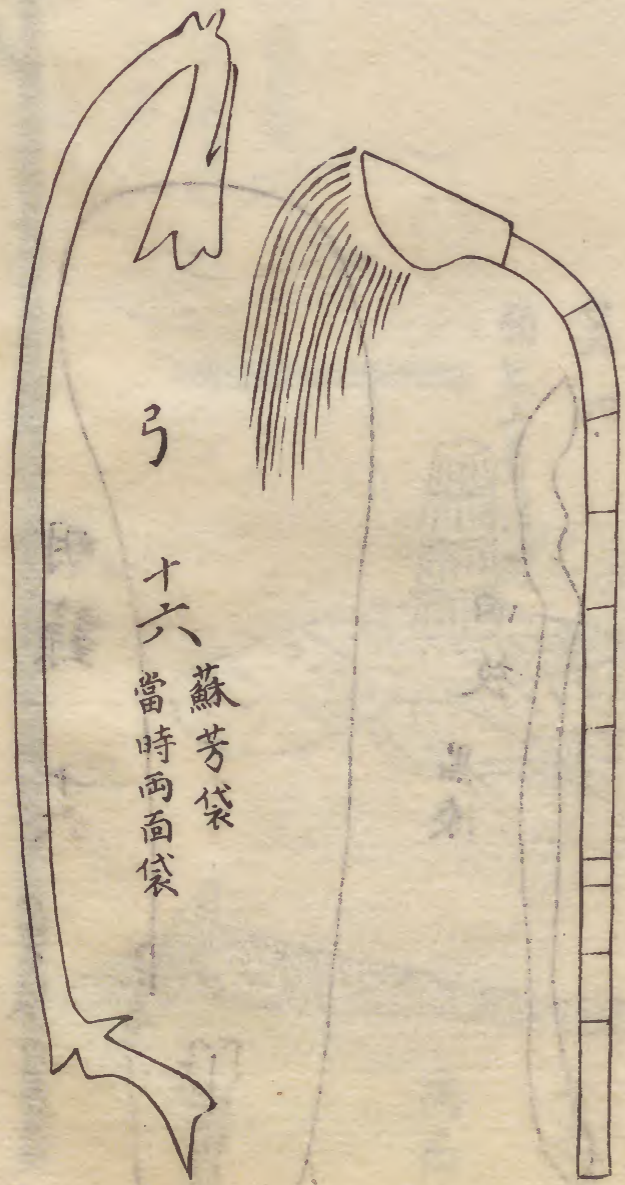 弓 十六
蘇芳袋
當時両面袋